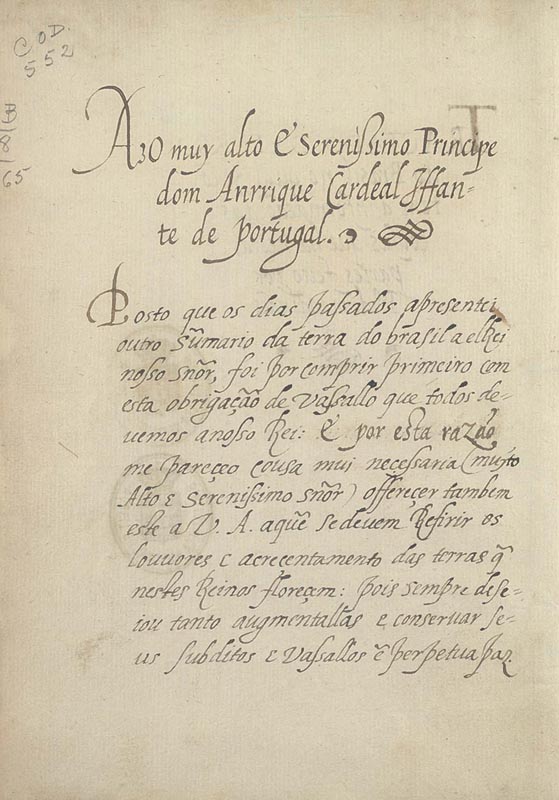 COD.
552
B
18
65
Ao muy alto E Sereníssimo Príncipe
dom Anrrique Cardeal Iffan-
te de portugal.
Posto que os dias passados apresentei
outro Sũmario da terra do brasil a elRei
nosso snõr, foi por comprir primeiro com
esta obrigação de vassallo que todos de-
uemos a nosso Rei: E por esta razão
me pareçeo cousa mui necessaria (muyto
Alto E Sereníssimo snõr) offereçer tambem
este a V. A. aquẽ se deuem Refirir os
louuores E acrecentamento das terras q̃
nestes Reinos floreçem: pois sempre dese-
iou tanto augmentallas e conseruar se-
us subditos E Vassallos ẽ perpetua paz.